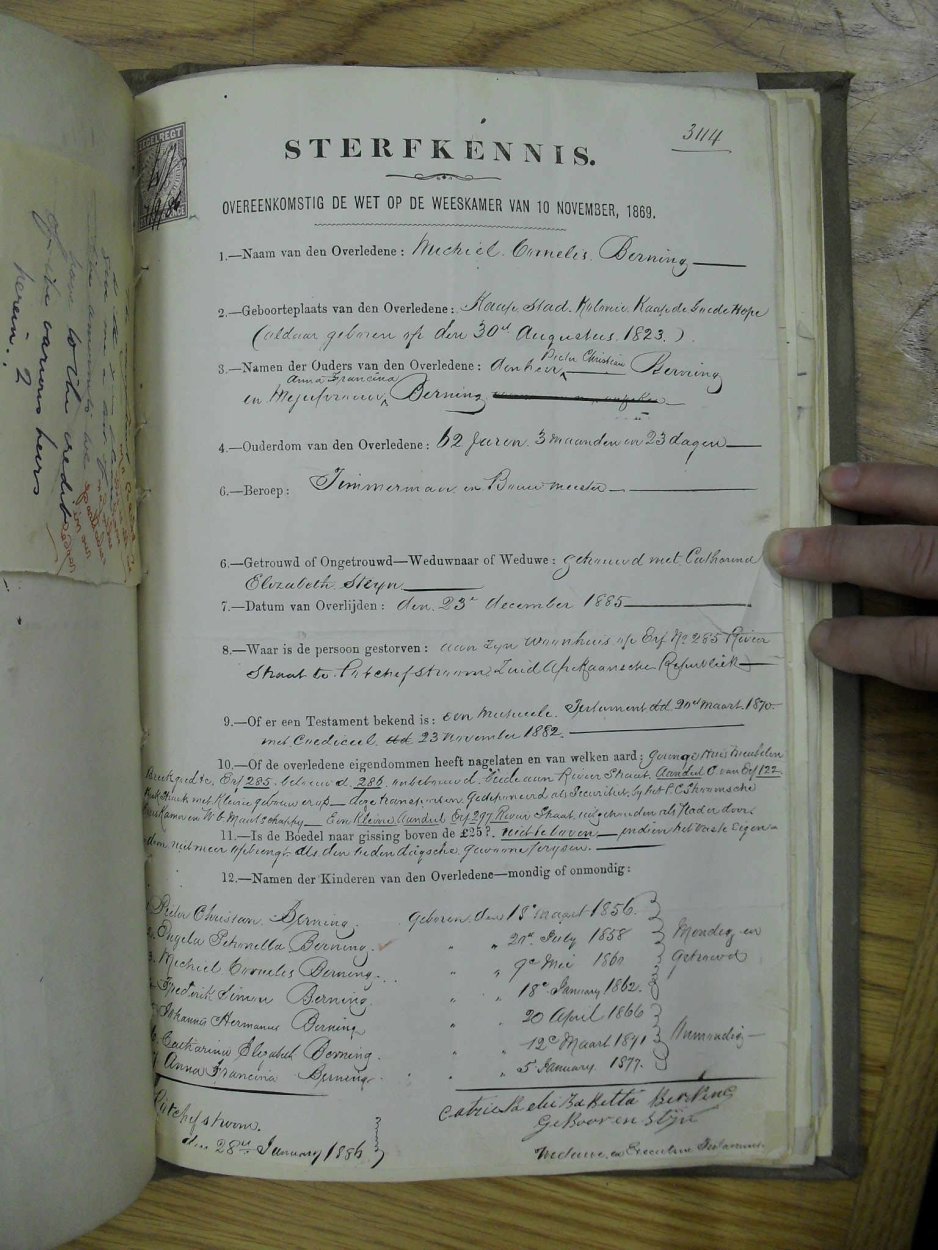 344
STERFKENNIS.
OVEREENKOMSTIG DE WET OP DE WEESKAMER VAN 10 NOVEMBER, 1869.
1.—Naam van den Overledene: Michiel Cornelis Berning
2.—Geboorteplaats van den Overledene: Kaap Stad. Kolonie Kaap de Goede Hope
(aldaar geboren op den 30st Augustus 1823.)
3.—Namen der Ouders van den Overledene: den heer Pieter Christiaan Berning
en Mejufvrouw Anna Francina Berning
4.—Ouderdom van den Overledene: 62 Jaren 3 maanden en 23 dagen
6.—Beroep: Timmerman en Bouwmeester
6.—Getrouwd of Ongetrouwd—Weduwnaar of Weduwe: getrouwd met Catharina
Elizabeth Steyn
7.—Datum van Overlijden: den 23e december 1885
8.—Waar is de persoon gestorven: aan zyn Woonhuis op Erf No 285 Rivier
Straat te Potchefstroom Zuid Afrikaansche Republiek
9.—Of er een Testament bekend is: een Mutueele Testament dd 20st Maart 1870
met Codiciel 23 November 1882.
10.—Of de overledene eigendommen heeft nagelaten en van welken aard: Geringe Huis Meubelen
Erf 285 bebouwd 286 onbebouwd beide aan Rivier Straat, Aandeel C van Erf 122
Kerk Straat met Kleine gebouw erop deze transporten Gedeponeerd als Securiteit by het P.C. Stroomsche
Weeskamer en W.b. Maatschappy Een Kleine Aandeel Erf 297 Rivier Straat
11.—Is de Boedel naar gissing boven de £25?. niet te boven indien het Vaste Eigen-
dom niet meer opbrengt als den heden daagsche
12.—Namen der Kinderen van den Overledene—mondig of onmondig:
Pieter Christiaan Berning geboren den 18e Maart 1856.
2. Engela Petronella Berning " " 21st July 1858 Mondig en
3. Michiel Cornelis Berning " " 9e Mei 1860 Getrouwd
Frederik Simon Berning " " 18e January 1862.
Johannis Hermanus Berning " " 20 April 1866
6 Catharina Elizabeth Berning " " 12e Maart 1871 Onmondig
7 Anna Francina Berning " " 5 January 1877.
Potchefstroom
den 28st January 1886
Berning
Gebooren Stijn
Weduwe en Executrice Testamentair
have to the credit
of the various heirs
herein.